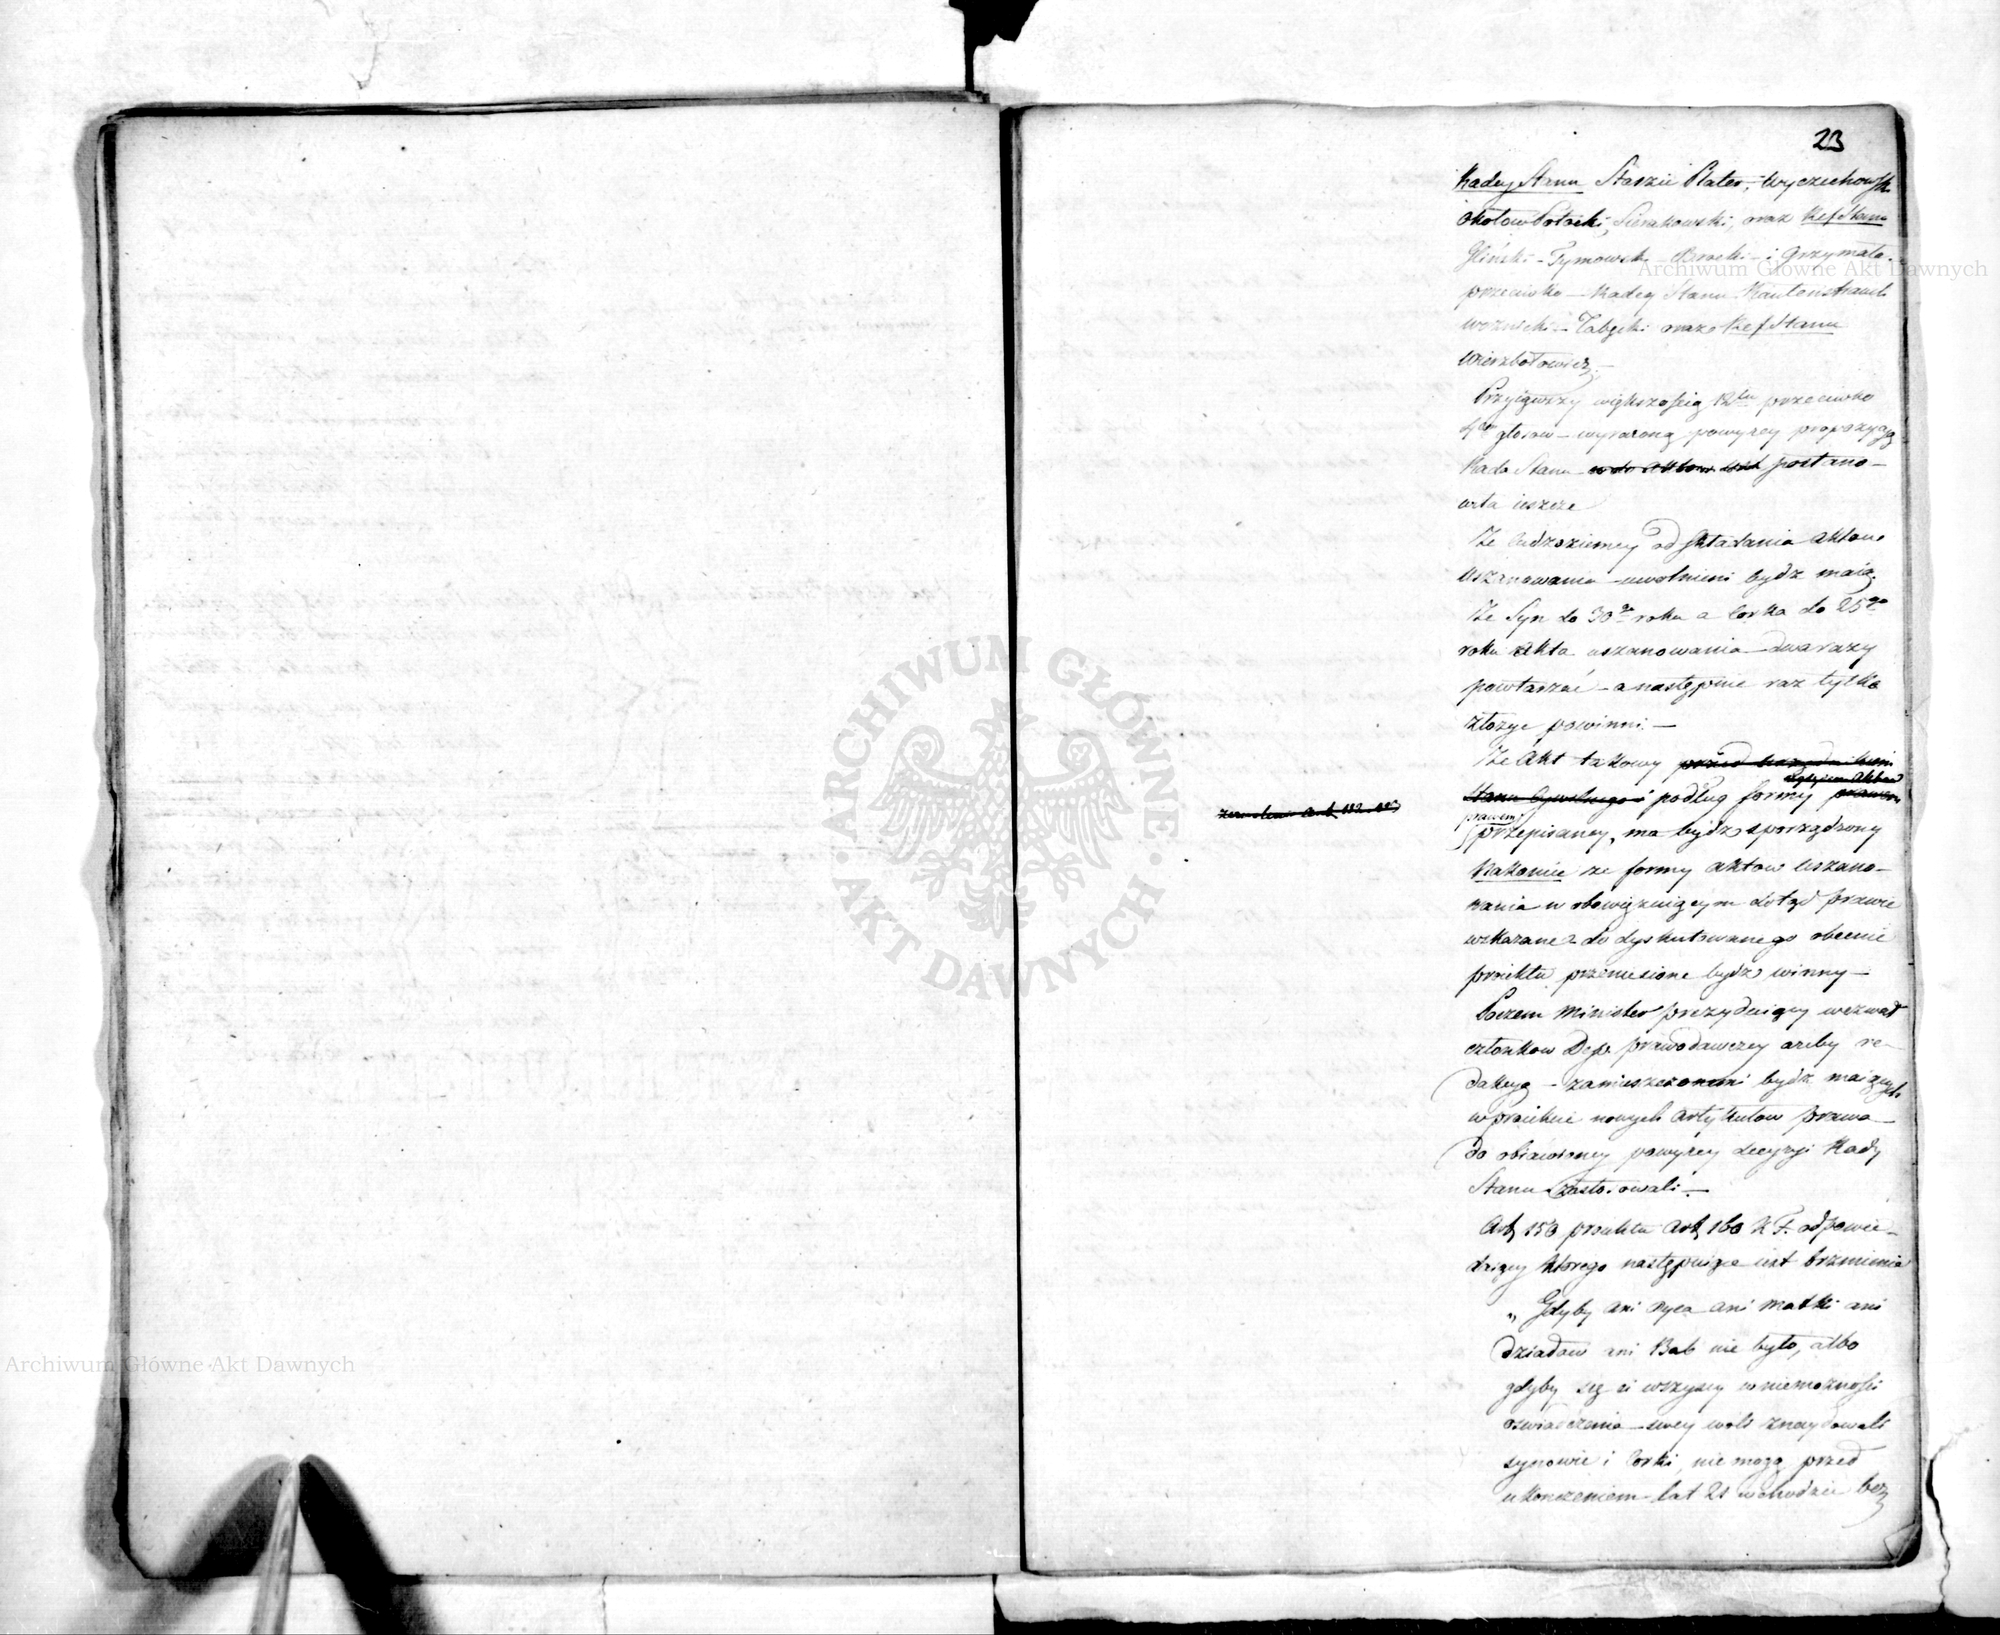 23
Radcy Stanu Staszic Plater, Wyczechowski
Okołow Potocki, Sierakowski, oraz Ref Stanu
Gliński - Tymowski - Brocki - i Grzymała.
przeciwko - Radcy Stanu
woźnicki - Zabycki oraz Ref Stanu
Wierzbołowicz. -
Przyiąwszy większością 12tu przeciwko
4m głosom - wyrażoną powyżey propozycyą
Rada Stanu postano-
wiła ieszcze
Że Cudzoziemcy od składania Aktow
uszanowania - uwolnieni bydź maią.
Że Syn do 30go roku a Corka do 25go
roku Akta uszanowania dwa razy
powtarzać - a następnie raz tylko
złożyć powinni. -
Że Akt takowy przed Urzędnikiem
Stanu Cywilnego i podług formy prawem
prawem
przepisaney, ma bydź sporządzony
Nakoniec że formy aktow uszano-
wania w obowiązuiącym dotąd prawie
wskazane do dyskutowanego obecnie
proiektu przeniesione bydź winny -
Poczem Minister prezyduiący wezwał
członkow Dep. prawodawczey ażeby re-
dakcyą - zamieszczonemi bydź maiących
w proiekcie nowych Artykułow prawa -
do obiawioney powyżey decyzyi Rady
Stanu zastosowali -
Art 150 proiektu Art 160 K F. odpowie-
daiący którego następuiące iest brzmienie
„ Gdyby ani Oyca ani Matki ani
Dziadow ani Bab nie było, albo
gdyby się ci wszyscy w niemożności
oświadczenia - swey woli znaydowali
synowie i Corki, nie mogą przed
ukończeniem - lat 21 wchodzić bez
Archiwum Główne Akt Dawnych
ARCHIWUM GŁÓWNE AKT DAWNYCH
Archiwum Główne Akt Dawnych